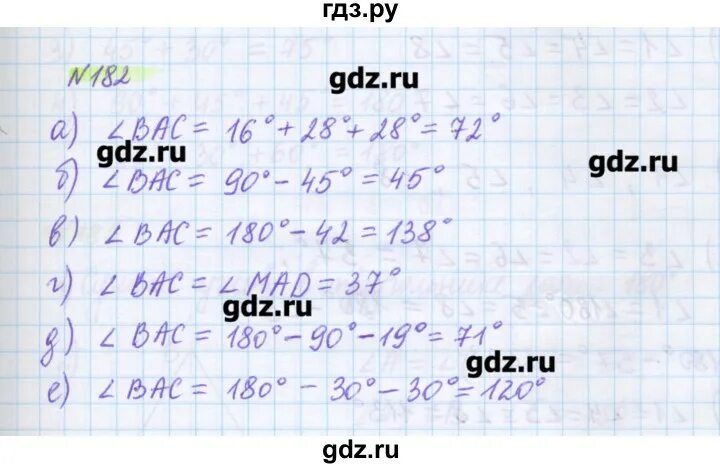 гдз.ру
№182
gdz.ru
а) ∠BAC = 16° + 28° + 28° = 72°
gdz.ru
gdz.ru
б) ∠BAC = 90° - 45° = 45°
в) ∠BAC = 180° - 42 = 138°
г) ∠BAC = ∠MAD = 37°
gdz.ru
д) ∠BAC = 180° - 90° - 19° = 71°
gdz.ru
е) ∠BAC = 180° - 30° - 30° = 120°
gdz.ru